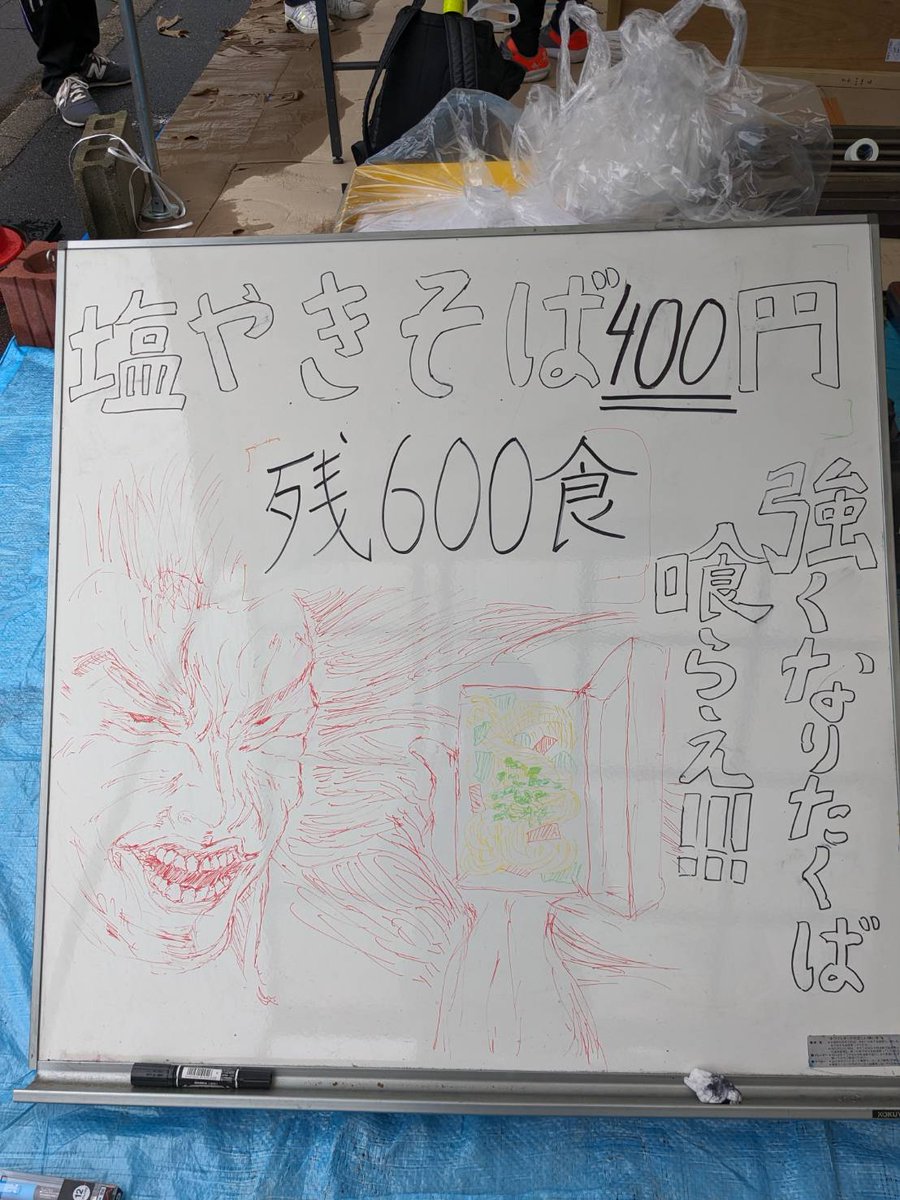 塩やきそば400円
残600食
強くなりたくば
喰らえ!!!
KOKUYO
12